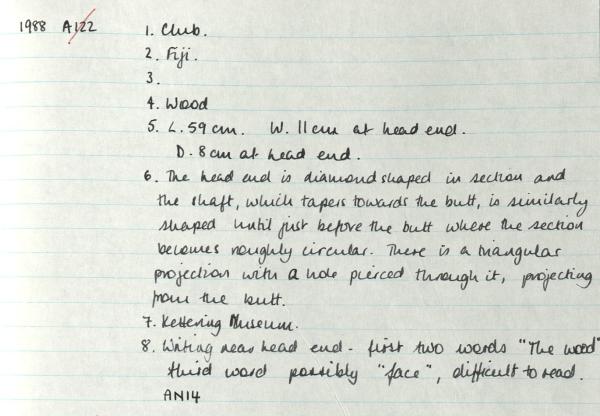 1988 A122 1. Club.
2. Fiji.
3.
4. Wood
5. L. 59 cm. W. 11 cm at head end.
D. 8 cm at head end.
6. The head end is diamond shaped in section and
the shaft, which tapers towards the butt, is similarly
shaped until just before the butt where the section
becomes roughly circular. There is a triangular
projection with a hole pierced through it, projecting
from the butt.
7. Kettering Museum.
8. Writing near head end - first two words "The wood"
third word possibly "face", difficult to read.
AN14